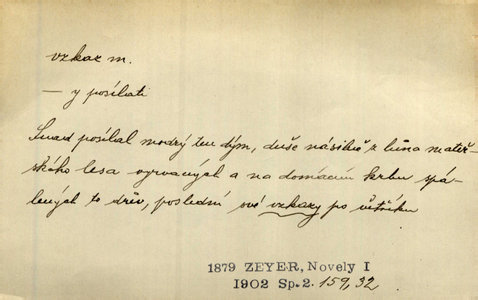 vzkaz m.
— y posílati
Snad posílal modrý ten dým, duše násilně z lůna mateř-
ského lesa vyrvaných a na domácím krbu spá-
lených to dřev, poslední své vzkazy po větříku
1879 ZEYER, Novely I
1902 Sp. 2. 159, 32